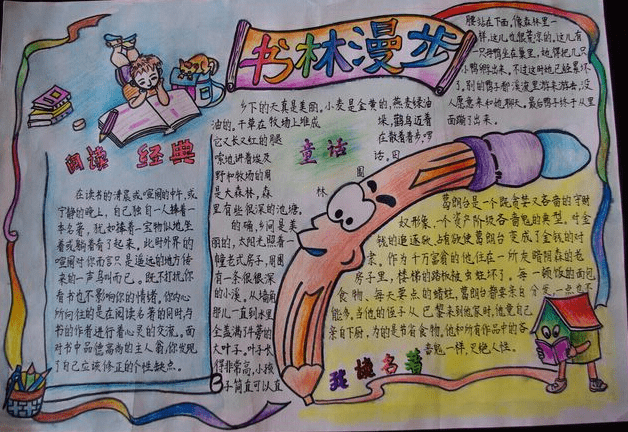 书林漫步
阅读 经典
在读书的清晨或喧闹的中午,或
宁静的晚上,自己独自一人捧着一
本名著,犹如捧着一宝物似地,坐
着或躺着看了起来,此时外界的
喧闹对你而言只是遥远的地方传
来的一声鸟叫而已。既不打扰你
看书也不影响你的情绪,你内心
所向往的是在阅读名著的同时与
书的作者进行着心灵的交流。面
对书中品德高尚的主人翁,你发现
了自己应该修正的个性缺点。
童话
乡下的天真是美丽。小麦是金黄的,燕麦绿油
油的。干草在牧场上堆成
垛,鹳鸟迈着
它又长又红的腿
在散着步,啰
嗦地讲着埃及
话。田
野和牧场的周
围
是大森林,森
林
里有些很深的池塘。
的确,乡间是美
丽的,太阳光照着一
幢老式房子,周围
有一条很深
的小溪。从墙角
那儿一直到水里
全盖满牛蒡的
大叶子。叶子长
得非常高,小孩
子简直可以直
腰站在下面,像森林里一
样,这儿也很荒凉的。这儿有
一只母鸭坐在巢里,她得把几只
小鸭孵出来。不过这时她已经累坏
了。别的鸭子都溪流里游来游去,没
人愿意来和她聊天。最后鸭子终于从里
面蹦了出来。
葛朗台是一个既贪婪又吝啬的守财
奴形象,一个资产阶级吝啬鬼的典型。对金
钱的追逐欲,占有欲使葛朗台变成了金钱的对
家,作为千万富翁的他,住在一所灰暗阴森的老
房子里,楼梯的踏板被虫蛀坏了。每一顿饭的面包
食物,每天要点的蜡烛,葛朗台都要亲自分发一点也不
能多,当他的侄子从巴黎来到他家时,他竟自己
亲自下厨,为的是节省食物,他和所有作品中的吝
啬鬼一样,灭绝人性。
我读名著